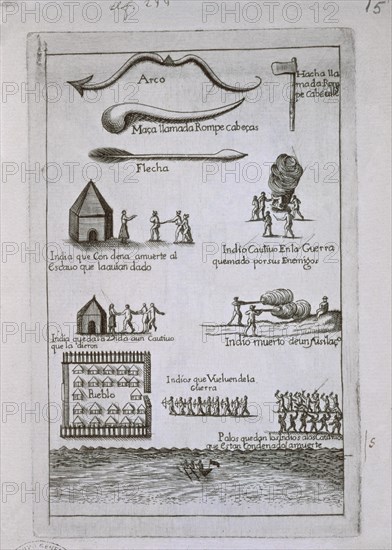 15
Arco
Hacha lla
mada Rom
pe Cabeças
Maça llamada Rompe cabeças
Flecha
India que Condena amuerte al
Esclauo que la auian dado
Indio Cautiuo En la Guerra
quemado por sus Enemigos
India que da la Vida aun Cautiuo
que la dieron
Indio muerto de un fusilaço
Pueblo
Indios que Vueluen de la
Guerra
Palos que dan los Indios a los
que Estan Condenados amuerte
15
PHOTO12
PHOTO12
PHOTO12